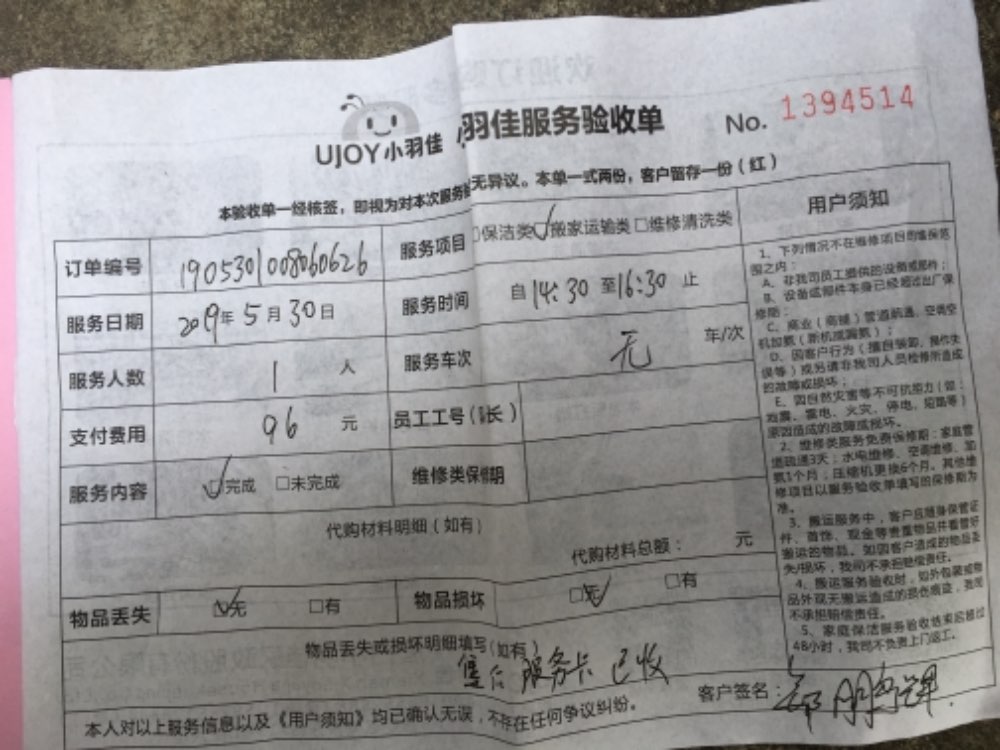 UJOY小羽佳
羽佳服务验收单
No. 1394514
本验收单一经核签，即视为对本次服务 无异议。本单一式两份，客户留存一份（红）
订单编号 1905301008060626 服务项目 □保洁类 ☑搬家运输类 □维修清洗类
服务日期 2019年5月30日 服务时间 自14:30至16:30止
服务人数 1 人 服务车次 无 车/次
支付费用 96 元 员工工号（ 长）
服务内容 ☑完成 □未完成 维修类保修期
代购材料明细（如有）
代购材料总额： 元
物品丢失 ☑无 □有 物品损坏 ☑无 □有
物品丢失或损坏明细填写（如有）
售后服务卡 已收
本人对以上服务信息以及《用户须知》均已确认无误，不存在任何争议纠纷。 客户签名：
用户须知
1、下列情况不在维修项目的维保范
围之内：
A、非我司员工提供的设施或部件；
B、设备或部件本身已经超过出厂保
修期；
C、商业（商铺）管道疏通、空调空
机加氨（新机或漏氨）；
D、因客户行为（擅自装卸、操作失
误等）或另请非我司人员检修所造成
的故障或损坏；
E、因自然灾害等不可抗力（如：
地震、雷电、火灾、停电、短路等）
原因造成的故障或损坏。
2、维修类服务免费保修期：家庭管
道疏通3天；水电维修、空调维修、加
氨1个月；压缩机更换6个月。其他维
修项目以服务验收单填写的保修期为
准。
3、搬运服务中，客户应随身保管证
件、首饰、现金等贵重物品并看管好
搬运的物品。如因客户造成的物品丢
失/损坏，我司不承担赔偿责任。
4、搬运服务验收时，如外包装或物
品外观无搬运造成的损伤痕迹，我司
不承担赔偿责任。
5、家庭保洁服务验收结束后超过
48小时，我司不负责上门返工。